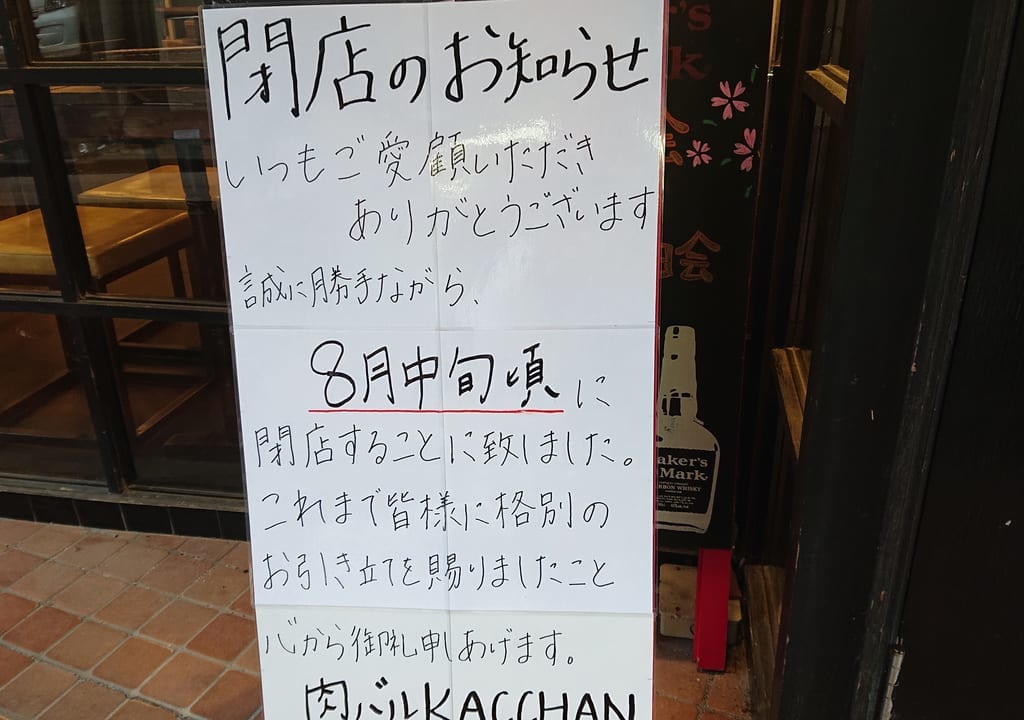 閉店のお知らせ
いつもご愛顧いただき
ありがとうございます
誠に勝手ながら、
8月中旬頃に
閉店することに致しました。
これまで皆様に格別の
お引き立てを賜りましたこと
心から御礼申しあげます。
肉バルKACCHAN
aker's
Mark
会